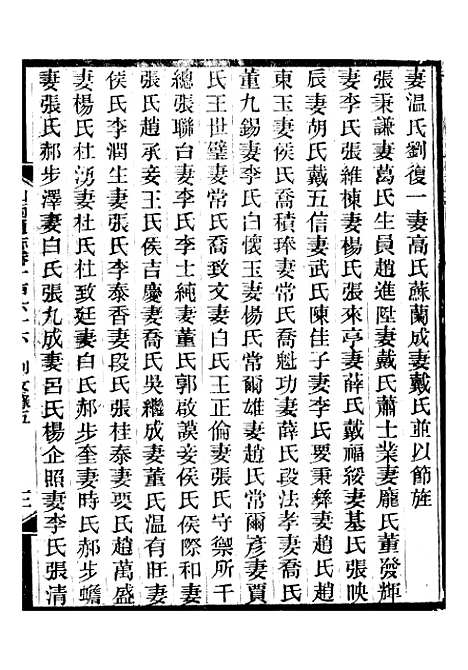 妻温氏劉復一妻高氏蘇蘭成妻戴氏並以節旌
張秉謙妻葛氏生員趙進陞妻戴氏蕭士業妻龐氏董發輝
妻李氏張維棟妻楊氏張來亭妻薛氏戴福綏妻基氏張映
辰妻胡氏戴五信妻武氏陳佳子妻李氏要秉彝妻趙氏趙
東玉妻侯氏喬積琫妻常氏喬魁功妻薛氏段法孝妻喬氏
董九錫妻李氏白懷玉妻楊氏常爾雄妻趙氏常爾彥妻賈
氏王世璧妻常氏喬致文妻白氏王正倫妻張氏守禦所千
總張聯台妻李氏士純妻董氏郭啟謨妾侯氏侯際和妻
張氏趙承妾王氏侯吉慶妻喬氏吳繼成妻董氏温有旺妻
侯氏李潤生妻張氏李泰香妻段氏張桂泰妻要氏趙萬盛
妻楊氏杜湧妻杜氏杜致廷妻白氏郝步奎妻時氏郝步蟾
妻張氏郝步澤妻白氏張九成妻呂氏楊企照妻李氏張清
列女錄五
三